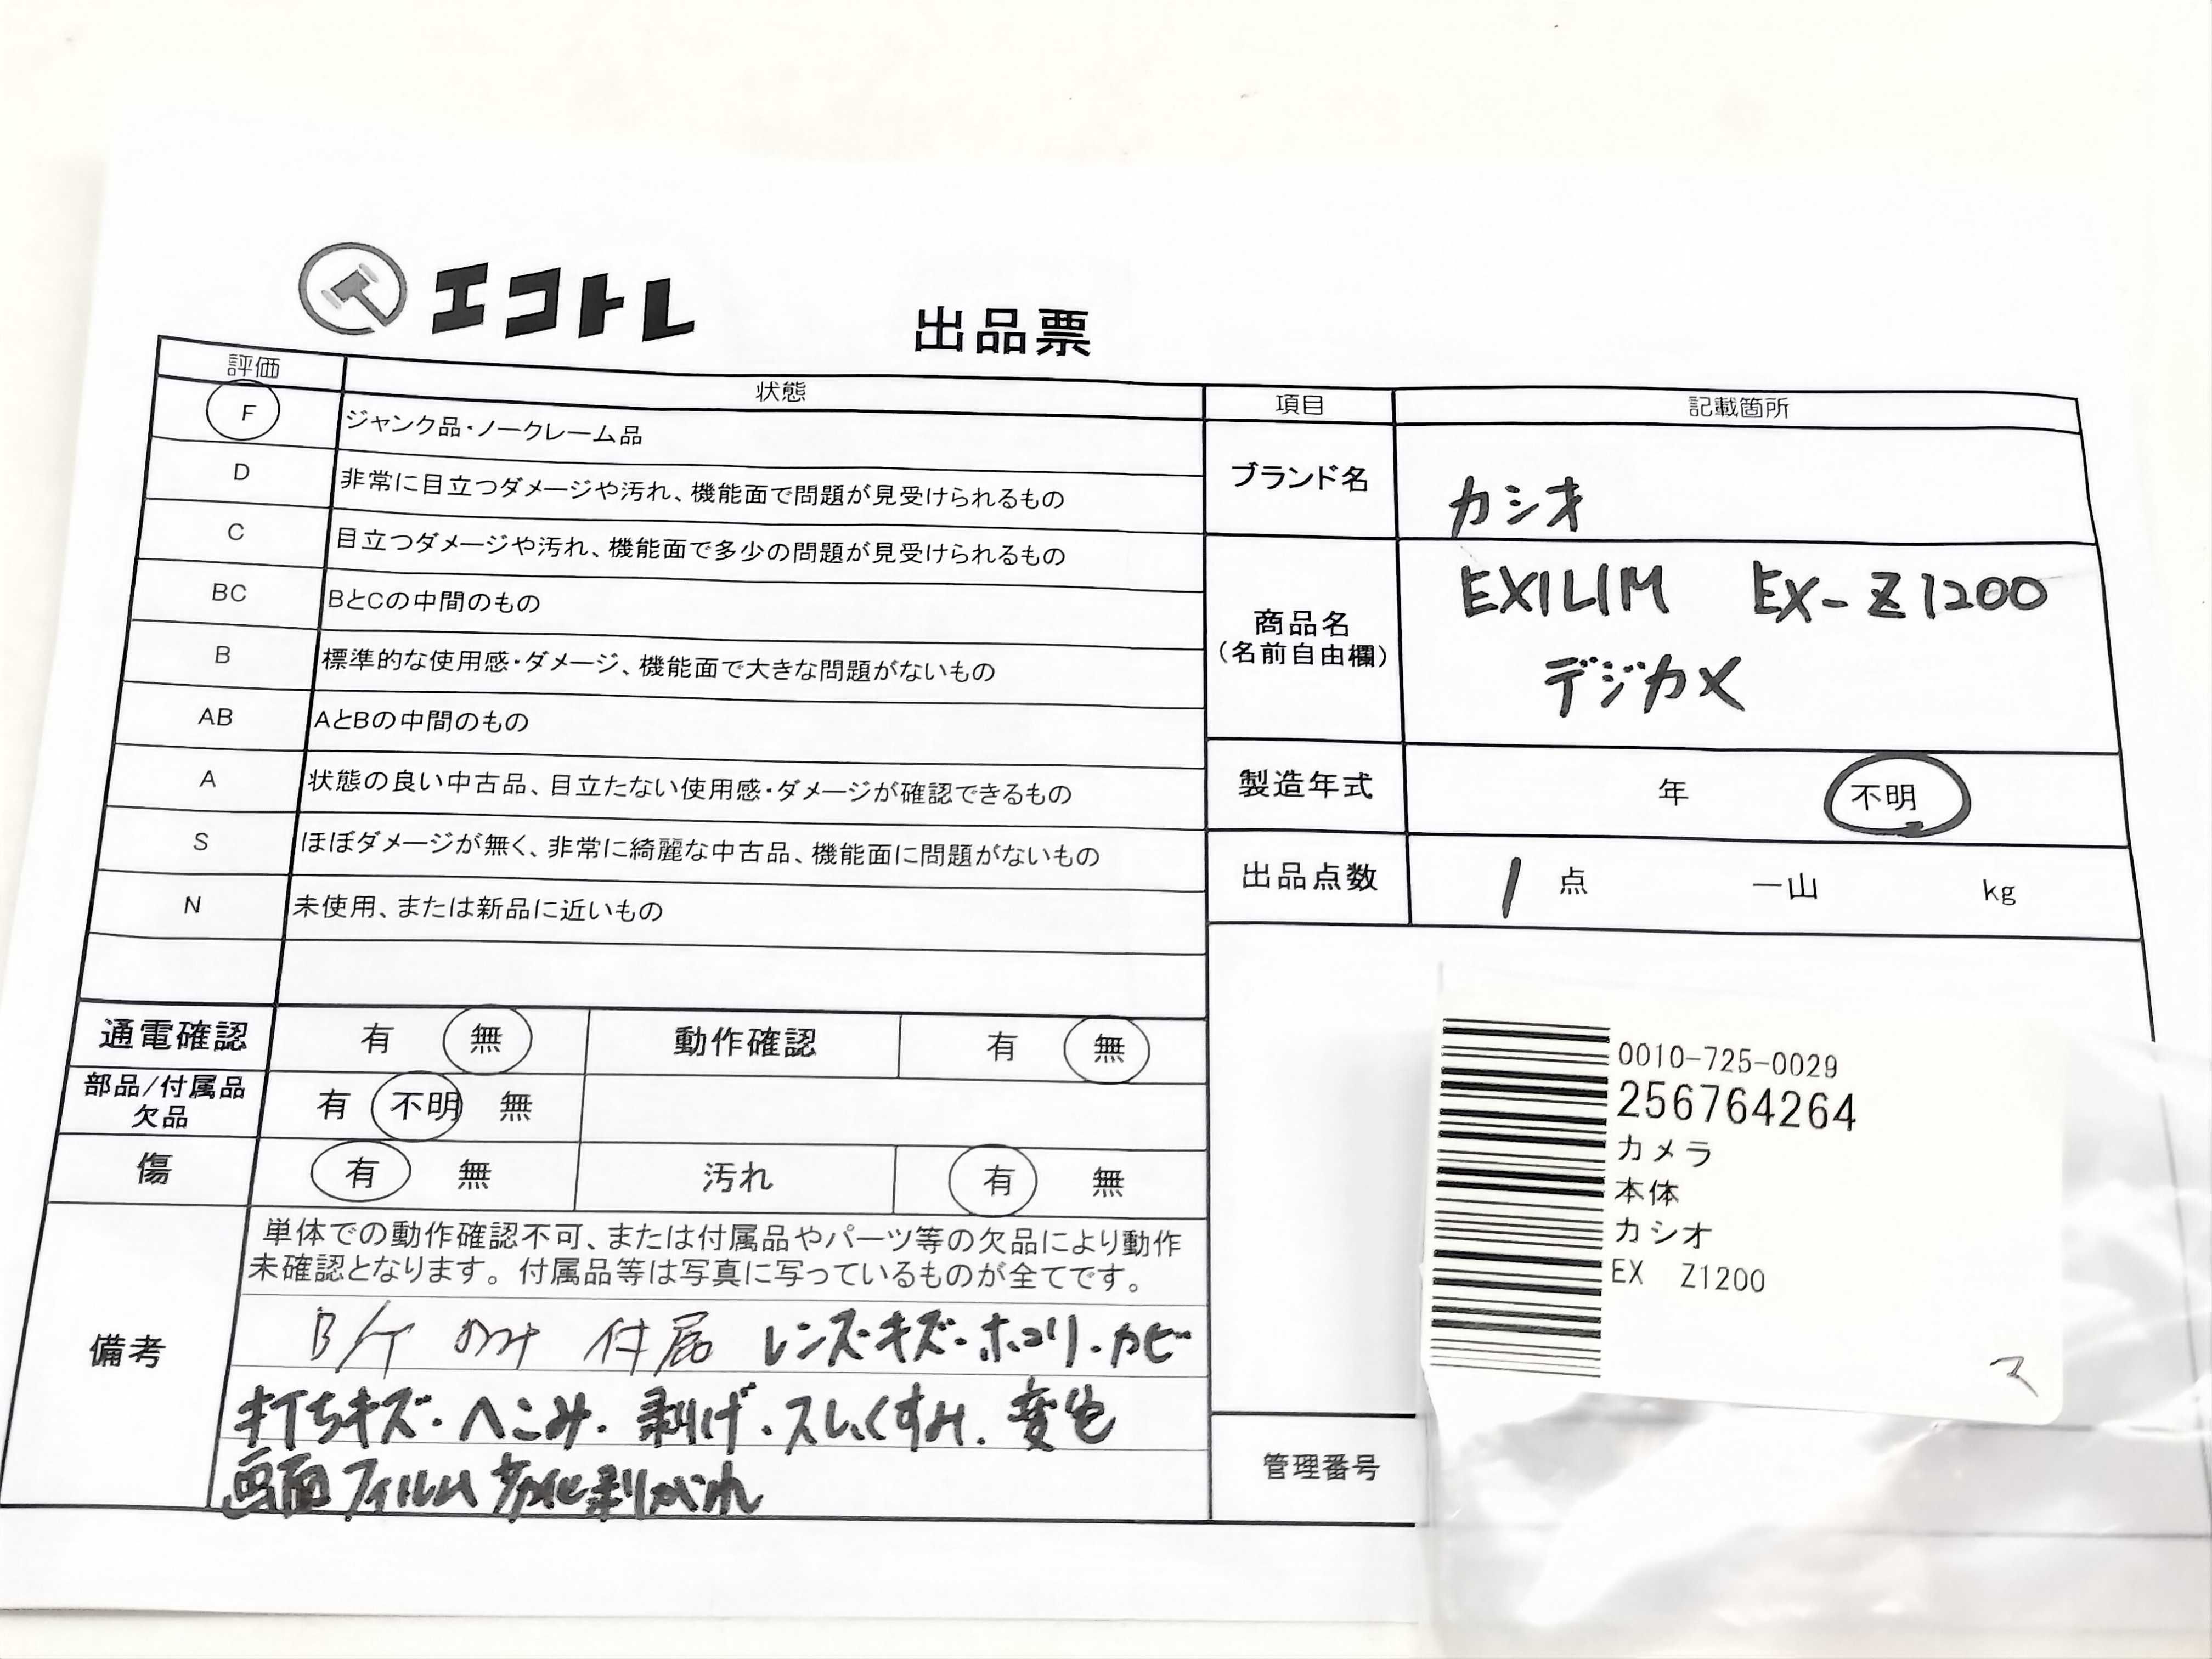 エコトレ
出品票
評価 状態
F ジャンク品・ノークレーム品
D 非常に目立つダメージや汚れ、機能面で問題が見受けられるもの
C 目立つダメージや汚れ、機能面で多少の問題が見受けられるもの
BC BとCの中間のもの
B 標準的な使用感・ダメージ、機能面で大きな問題がないもの
AB AとBの中間のもの
A 状態の良い中古品、目立たない使用感・ダメージが確認できるもの
S ほぼダメージが無く、非常に綺麗な中古品、機能面に問題がないもの
N 未使用、または新品に近いもの
通電確認 有 無 動作確認 有 無
部品/付属品
欠品 有 不明 無
傷 有 無 汚れ 有 無
備考
単体での動作確認不可、または付属品やパーツ等の欠品により動作
未確認となります。付属品等は写真に写っているものが全てです。
B/T のみ 付属 レンズ・キズ・ホコリ・カビ
打ちキズ・へこみ・剥げ・スレ・くすみ・変色
画面フィルム劣化剥がれ
項目 記載箇所
ブランド名 カシオ
商品名
(名前自由欄)
EXILIM EX-Z1200
デジカメ
製造年式 年 不明
出品点数 1 点 一山 kg
管理番号
0010-725-0029
256764264
カメラ
本体
カシオ
EX Z1200